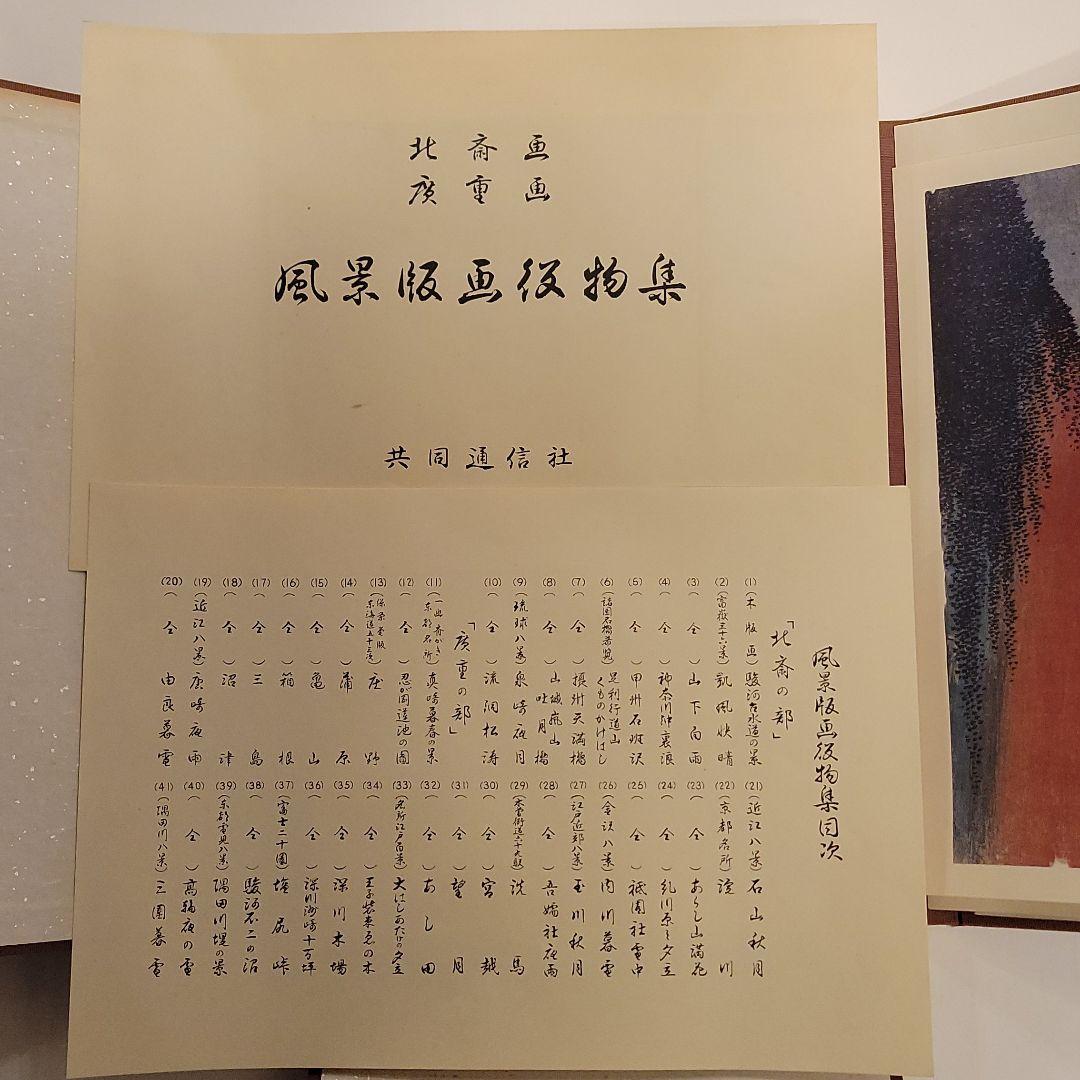 北斎画
廣重画
風景版画役物集
共同通信社
風景版画役物集目次
「北斎の部」
(1)(木版画)駿河台水道の景
(2)(富嶽三十六景)凱風快晴
(3)(仝)山下白雨
(4)(仝)神奈川沖裏浪
(5)(仝)甲州石班沢
(6)(諸国名橋奇覧)足利行道山くものかけはし
(7)(仝)摂州天満橋
(8)(仝)山城嵐山吐月橋
(9)(琉球八景)泉崎夜月
(10)(仝)流洞松涛
「廣重の部」
(11)(一幽斎がき東都名所)真崎暮春の景
(12)(仝)忍が岡蓮池の圖
(13)(保永堂版東海道五十三次)庄野
(14)(仝)蒲原
(15)(仝)亀山
(16)(仝)箱根
(17)(仝)三島
(18)(仝)沼津
(19)(近江八景)唐崎夜雨
(20)(仝)由良暮雪
(21)(近江八景)石山秋月
(22)(京都名所)淀川
(23)(仝)あらし山満花
(24)(仝)糺川原夕立
(25)(仝)祗園社雪中
(26)(金沢八景)内川暮雪
(27)(江戸近郊八景)玉川秋月
(28)(仝)吾嬬社夜雨
(29)(木曽街道六十九駅)洗馬
(30)(仝)宮越
(31)(仝)望月
(32)(仝)あし田
(33)(名所江戸百景)大はしあたけの夕立
(34)(仝)王子装束ゑの木
(35)(仝)深川木場
(36)(仝)深川洲崎十万坪
(37)(富士三十六圖)塩尻峠
(38)(仝)駿河不二の沼
(39)(東都雪見八景)隅田川堤の景
(40)(仝)高輪夜の雪
(41)(隅田川八景)三圍暮雪